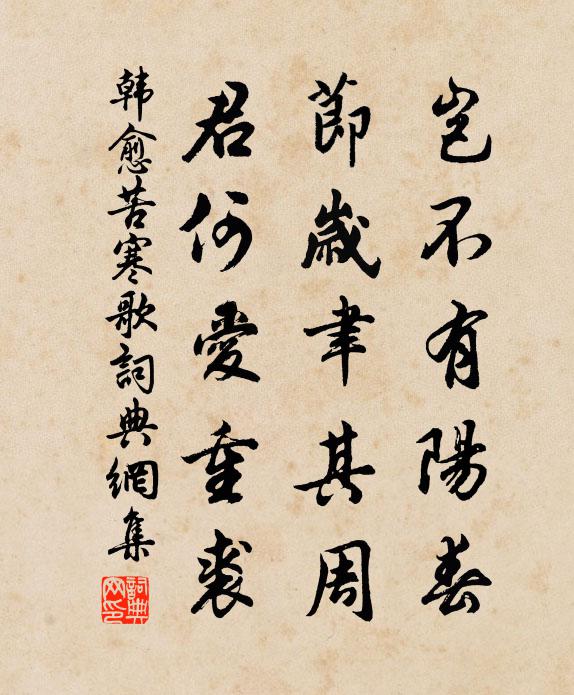 岂不有陽春
節歲聿其周
君何愛重裘
韓愈苦寒歌詞典網集
詞典
网印